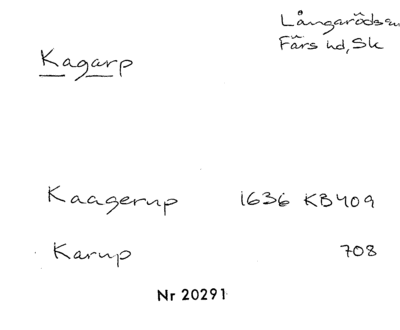 Långaröds
Färs hd, Sk
Kagarp
Kaagerup 1636 KB 409
Karup 708
Nr 20291